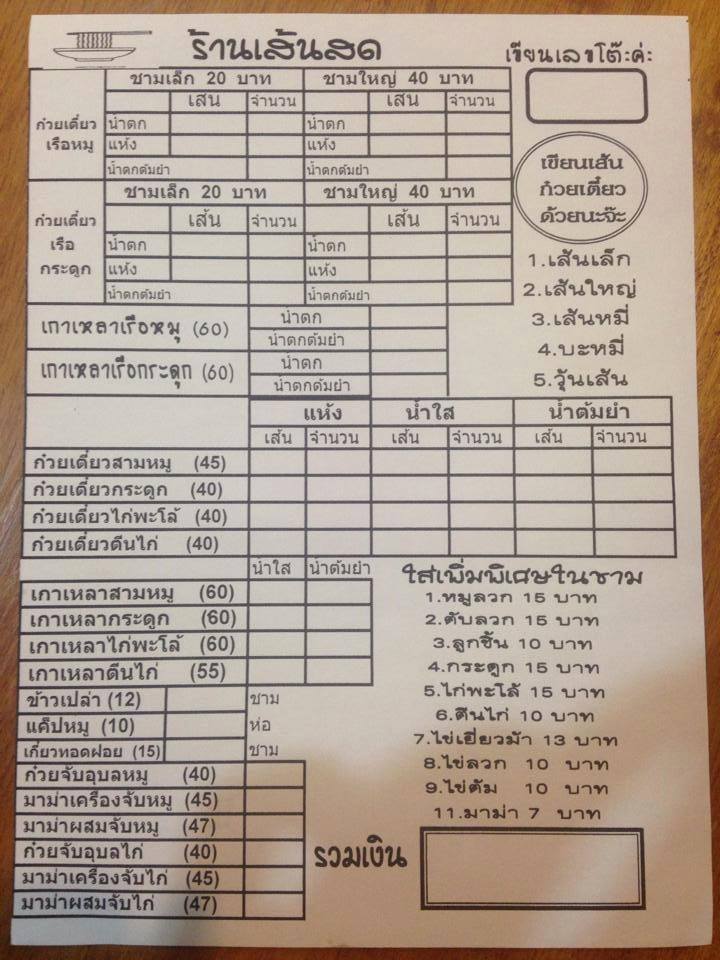 ร้านเส้นสด
เขียนเลขโต๊ะค่ะ
ชามเล็ก 20 บาท ชามใหญ่ 40 บาท
เส้น จำนวน เส้น จำนวน
ก๋วยเตี๋ยว น้ำตก น้ำตก
เรือหมู แห้ง แห้ง
น้ำตกต้มยำ น้ำตกต้มยำ
เขียนเส้น
ก๋วยเตี๋ยว
ด้วยนะจ๊ะ
ชามเล็ก 20 บาท ชามใหญ่ 40 บาท
ก๋วยเตี๋ยว เส้น จำนวน เส้น จำนวน
เรือ น้ำตก น้ำตก
กระดูก แห้ง แห้ง
น้ำตกต้มยำ น้ำตกต้มยำ
1.เส้นเล็ก
2.เส้นใหญ่
3.เส้นหมี่
4.บะหมี่
5.วุ้นเส้น
เกาเหลาเรือหมู (60) น้ำตก
น้ำตกต้มยำ
เกาเหลาเรือกระดูก (60) น้ำตก
น้ำตกต้มยำ
แห้ง น้ำใส น้ำต้มยำ
เส้น จำนวน เส้น จำนวน เส้น จำนวน
ก๋วยเตี๋ยวสามหมู (45)
ก๋วยเตี๋ยวกระดูก (40)
ก๋วยเตี๋ยวไก่พะโล้ (40)
ก๋วยเตี๋ยวตีนไก่ (40)
น้ำใส น้ำต้มยำ
เกาเหลาสามหมู (60)
เกาเหลากระดูก (60)
เกาเหลาไก่พะโล้ (60)
เกาเหลาตีนไก่ (55)
ข้าวเปล่า (12) ชาม
แค็ปหมู (10) ห่อ
เกี๋ยวทอดฝอย (15) ชาม
ก๋วยจั๊บอุบลหมู (40)
มาม่าเครื่องจับหมู (45)
มาม่าผสมจับหมู (47)
ก๋วยจับอุบลไก่ (40)
มาม่าเครื่องจับไก่ (45)
มาม่าผสมจับไก่ (47)
ใส่เพิ่มพิเศษในชาม
1.หมูลวก 15 บาท
2.ตับลวก 15 บาท
3.ลูกชิ้น 10 บาท
4.กระดูก 15 บาท
5.ไก่พะโล้ 15 บาท
6.ตีนไก่ 10 บาท
7.ไข่เยี่ยวม้า 13 บาท
8.ไข่ลวก 10 บาท
9.ไข่ต้ม 10 บาท
11.มาม่า 7 บาท
รวมเงิน